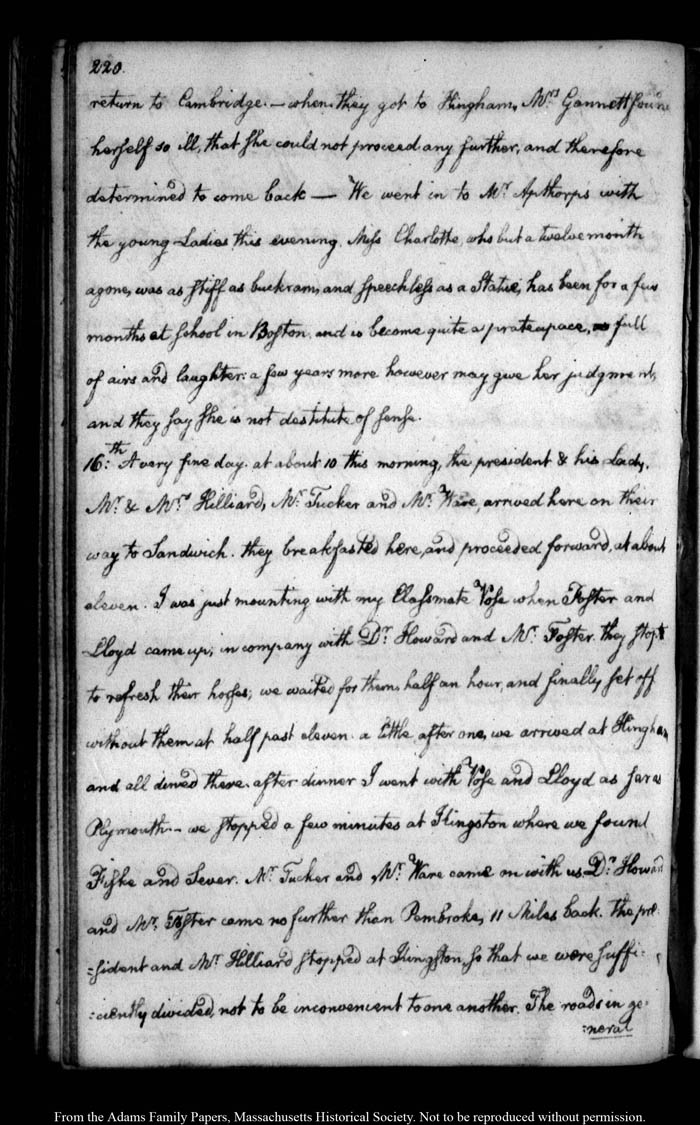 220.
return to Cambridge. — when they got to Hingham, Mrs Gannett found
herself so ill, that she could not proceed any further, and therefore
determined to come back — We went in to Mr Apthorps with
the young Ladies this evening. Miss Charlotte, who but a twelvemonth
agone, was as stiff as buckram, and speechless as a Statue, has been for a few
months at school in Boston, and is become quite a prateapace, full
of airs and laughter: a few years more however may give her judgment,
and they say she is not destitute of sense.
16:th A very fine day. at about 10 this morning, the president & his Lady,
Mr. & Mrs Hilliard, Mr. Tucker and Mr. Ware, arrived here on their
way to Sandwich. they breakfasted here, and proceeded forward, at about
eleven. I was just mounting with my Classmate Vose when Foster and
Lloyd came up, in company with Dr. Howard and Mr. Foster. they stopt
to refresh their horses; we waited for them half an hour, and finally set off
without them at half past eleven. a little after one, we arrived at Hingham
and all dined there. after dinner I went with Vose and Lloyd as far as
Plymouth. — we stopped a few minutes at Kingston where we found
Fiske and Sever. Mr. Tucker and Mr. Ware came on with us. Dr. Howard
and Mr. Foster came no further than Pembroke, 11 Miles back. The pre:
:sident and Mr. Hilliard stopped at Kingston, so that we were suffi:
:ciently divided, not to be inconvenient to one another. The roads in ge:
:neral
From the Adams Family Papers, Massachusetts Historical Society. Not to be reproduced without permission.